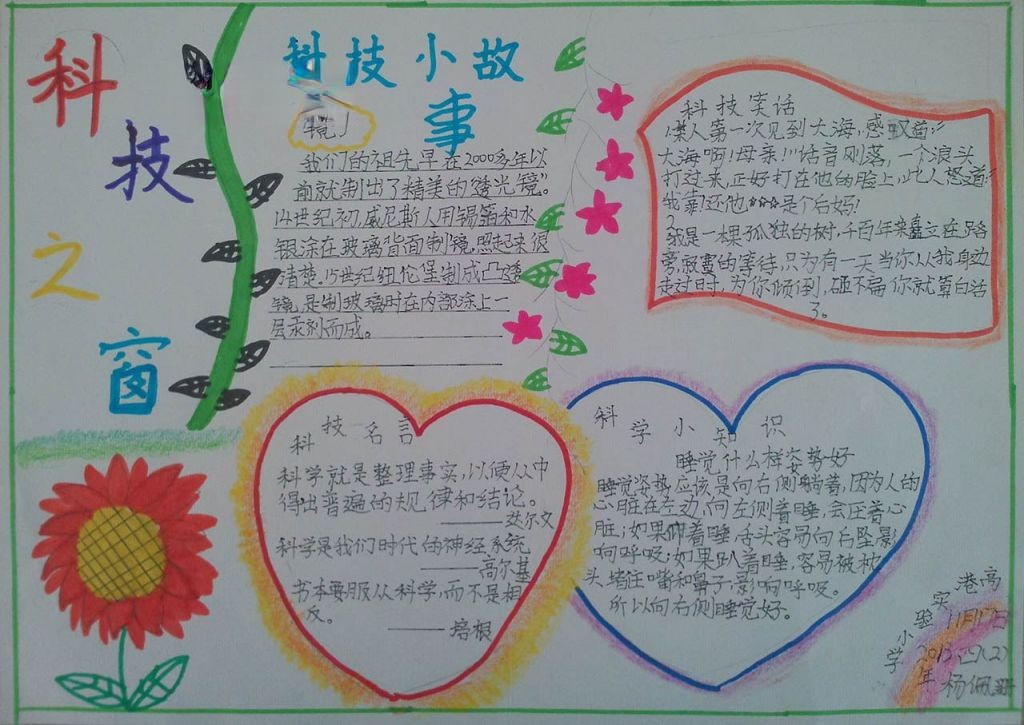 科技之窗
科技小故事
镜
我们的祖先早在2000多年以
前就制出了精美的“透光镜”。
14世纪初,威尼斯人用锡箔和水
银涂在玻璃背面制镜,照起来很
清楚。15世纪纽伦堡制成凸透
镜,是制玻璃时在内部涂上一
层汞剂而成。
科技笑话
1.某人第一次见到大海,感叹道:“
大海啊!母亲!”话音刚落,一个浪头
打过来,正好打在他的脸上,此人怒道:“
我靠还他☆☆☆是个后妈!
我是一棵孤独的树,千百年来矗立在路
旁,寂寞的等待,只为有一天当你从我身边
走过时,为你倾倒,砸不扁你就算白活
了。
科技名言
科学就是整理事实,以便从中
得出普遍的规律和结论。
——达尔文
科学是我们时代的神经系统
——高尔基
书本要服从科学,而不是相
反。
——培根
科学小知识
睡觉什么样姿势好
睡觉姿势应该是向右侧躺着,因为人的
心脏在左边,向左侧着睡,会压着心
脏;如果仰着睡,舌头容易向后坠,影
响呼吸;如果趴着睡,容易被枕
头,堵住嘴和鼻子,影响呼吸。
所以向右侧睡觉好。
港高
实验小学
11月17日
2013年
四(2)
杨佩